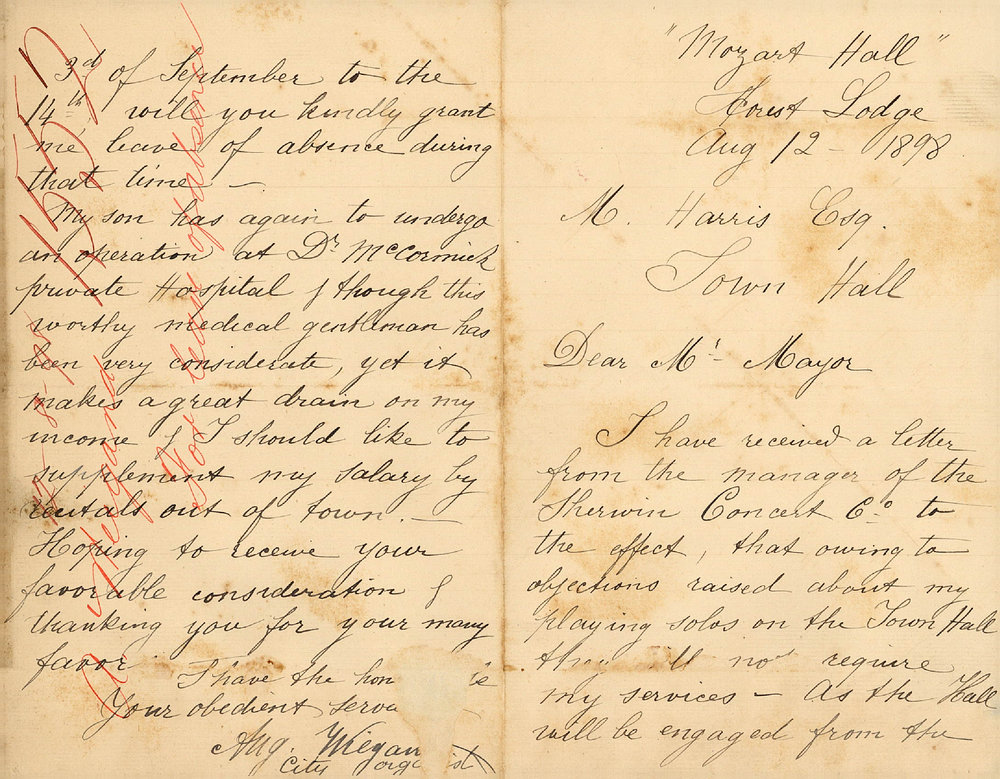 "Mozart Hall"
Forest Lodge
Aug 12 - 1898
M. Harris Esq.
Town Hall
Dear Mr. Mayor
I have received a letter
from the manager of the
Sherwin Concert Co. to
the effect, that owing to
objections raised about my
playing solos on the Town Hall
not require
my services - As the Hall
will be engaged from the
3rd of September to the
14th, will you kindly grant
me leave of absence during
that time -
My son has again to undergo
an operation at Dr McCormick
private Hospital & though this
worthy medical gentleman has
been very considerate, yet it
makes a great drain on my
income & I should like to
supplement my salary by
recitals out of town. -
Hoping to receive your
favorable consideration &
thanking you for your many
favor
I have the hon
Your obedient serva
Aug. Wiegan
City organist
A Wiegand
For leave of absence